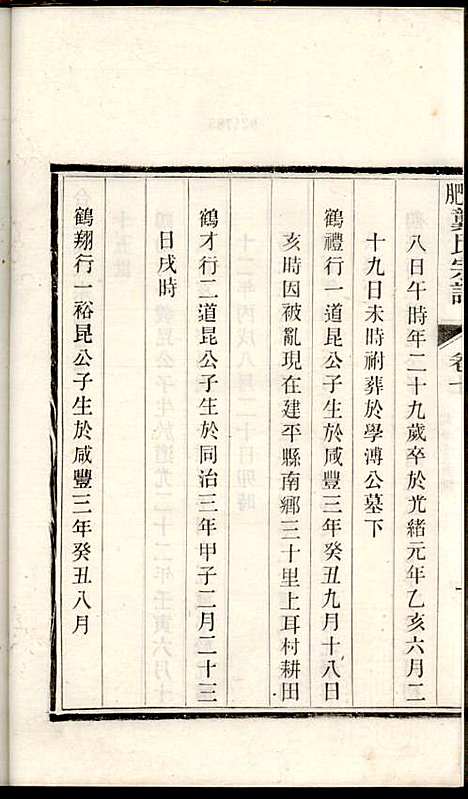 肥龔氏宗譜
卷十
八日午時年二十九歲卒於光緒元年乙亥六月二
十九日未時祔葬於學溥公墓下
鶴禮行一道昆公子生於咸豐三年癸丑九月十八日
亥時因被亂現在建平縣南鄉三十里上耳村耕田
鶴才行二道昆公子生於同治三年甲子二月二十三
日戌時
鶴翔行一裕昆公子生於咸豐三年癸丑八月